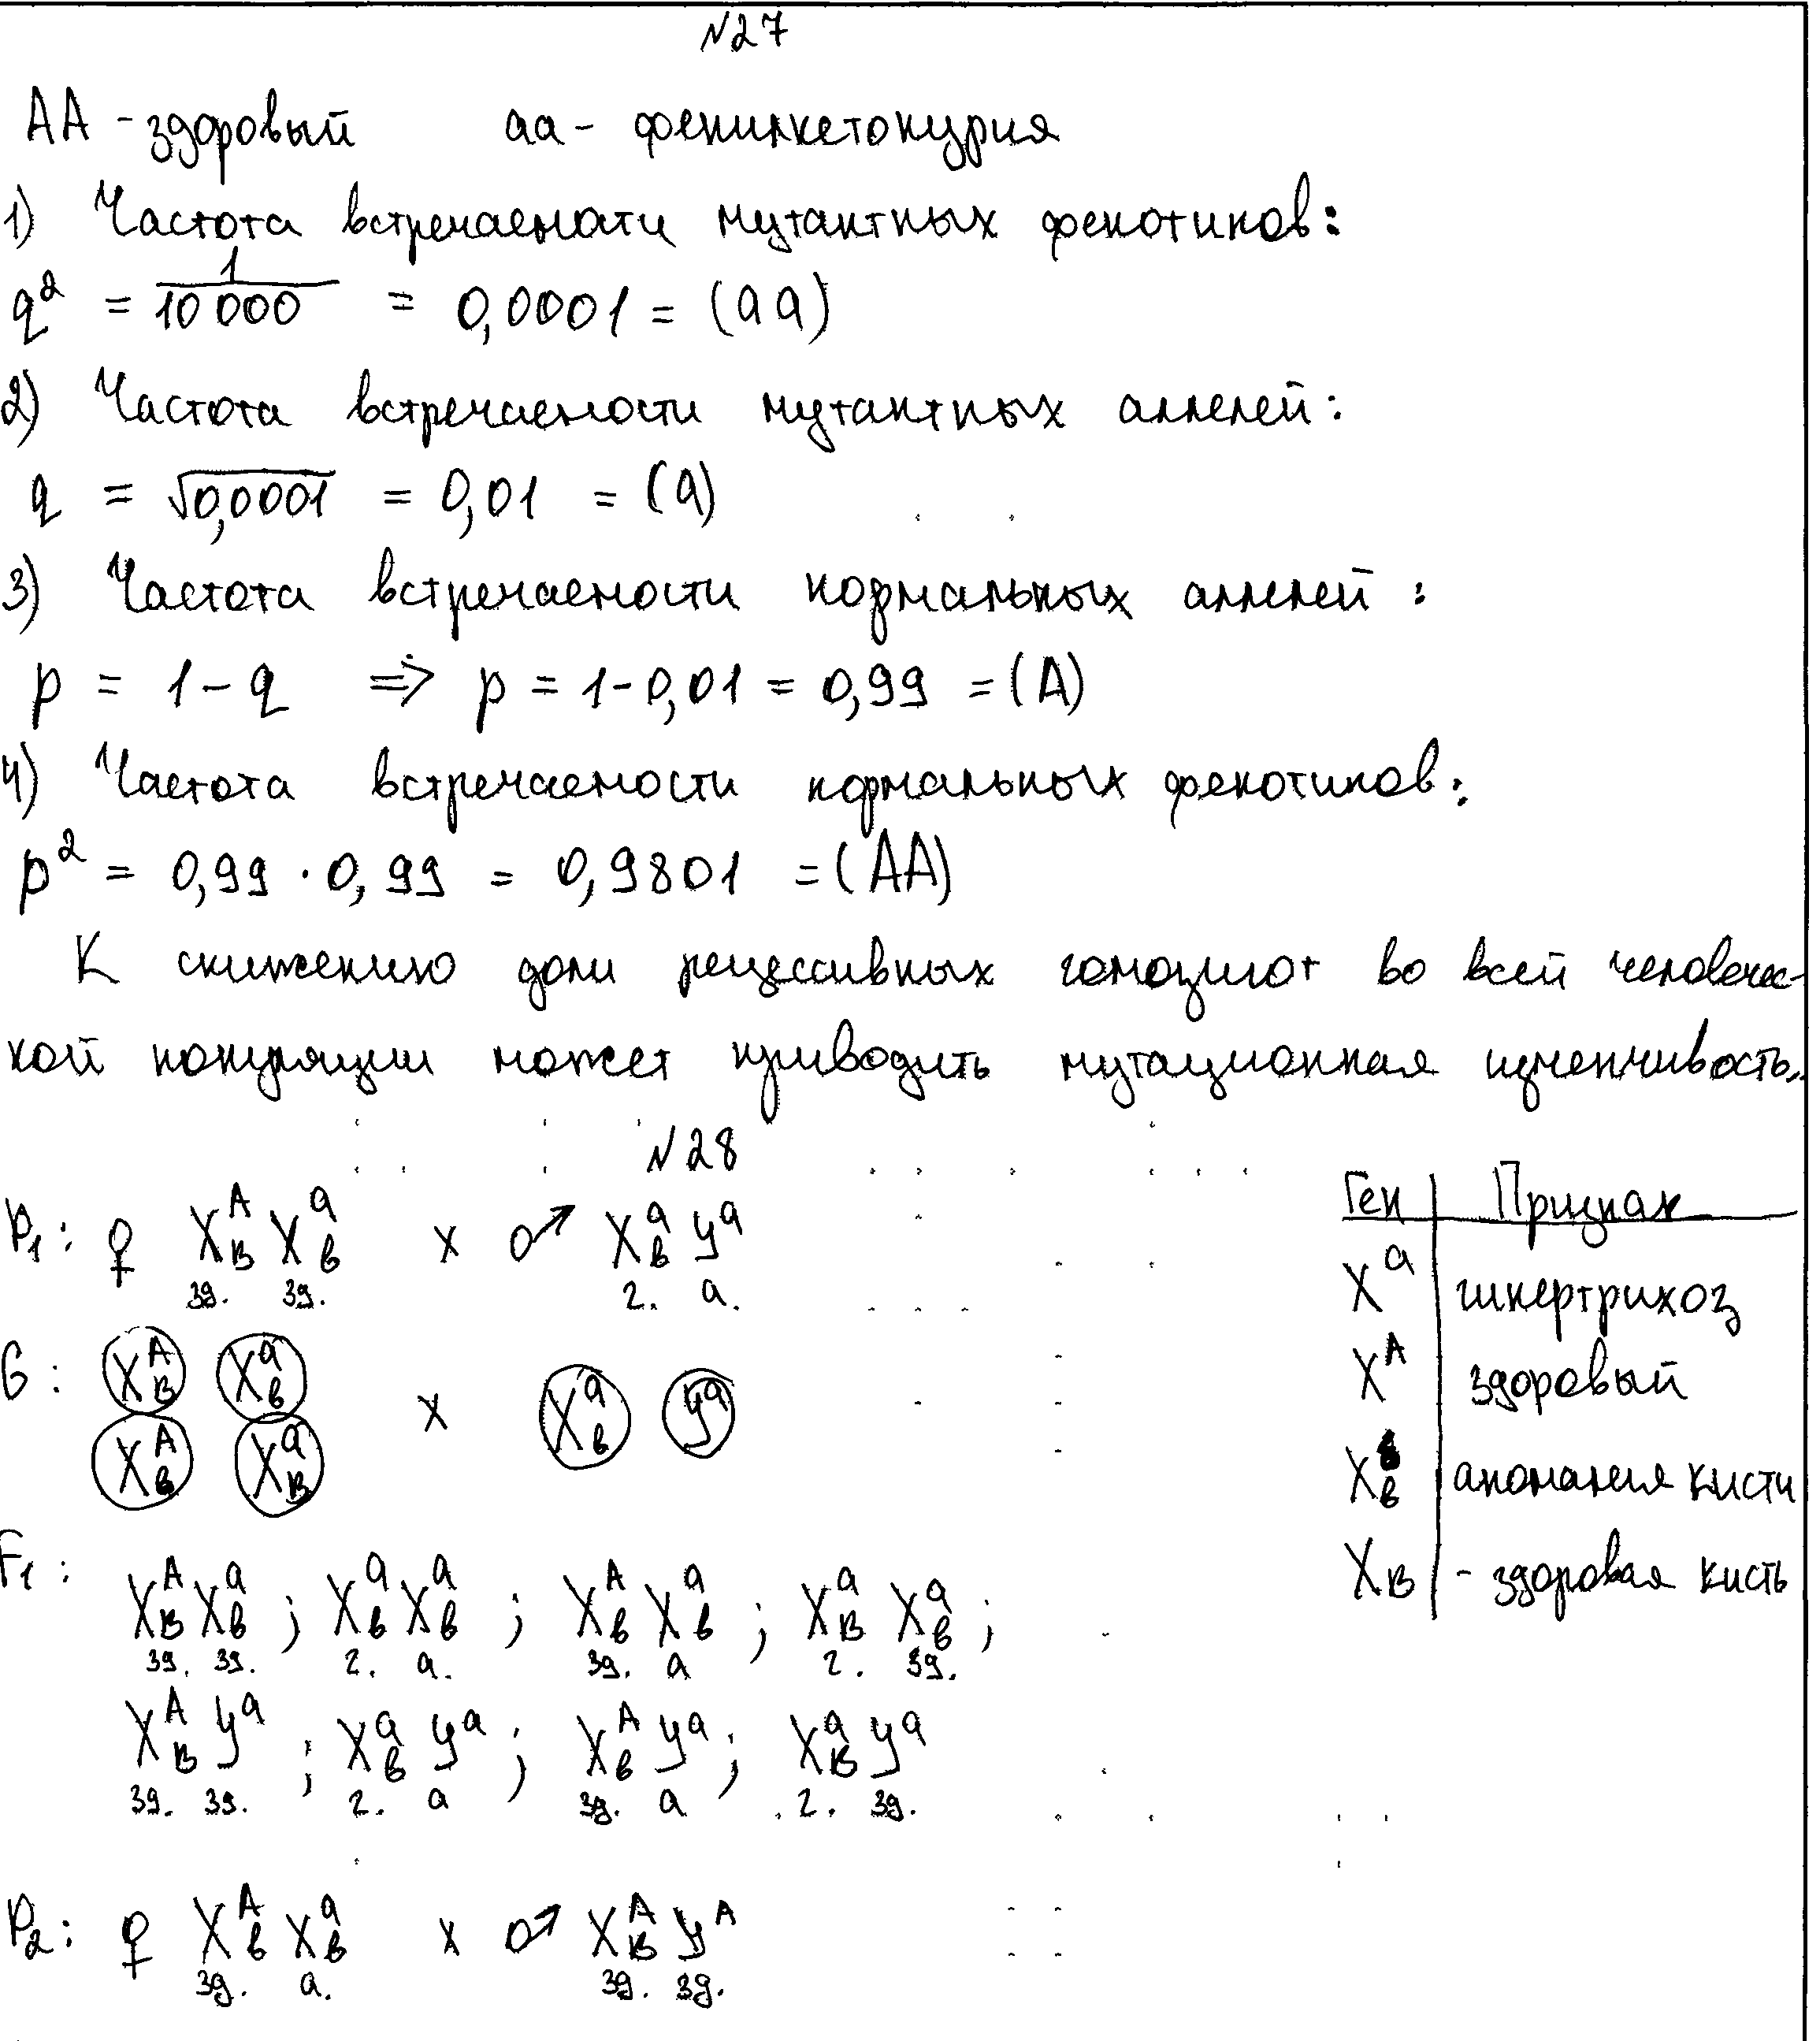 №27
AA - здоровый аа - фенилкетонурия
1) Частота встречаемости мутантных фенотипов:
q² = 1/10 000 = 0,0001 = (aa)
2) Частота встречаемости мутантных аллелей:
q = √0,0001 = 0,01 = (a)
3) Частота встречаемости нормальных аллелей:
p = 1 - q ⇒ p = 1 - 0,01 = 0,99 = (A)
4) Частота встречаемости нормальных фенотипов:
p² = 0,99 · 0,99 = 0,9801 = (AA)
К снижению доли рецессивных гомозигот во всей человечес-
кой популяции может приводить мутационная изменчивость.
№28
P₁: ♀ X^A_B X^a_b x ♂ X^a_b y^a
зд. зд. г. а.
G: X^A_B X^a_b x X^a_b y^a
X^A_b X^a_B
F₁: X^A_B X^a_b ; X^a_b X^a_b ; X^A_b X^a_b ; X^a_B X^a_b ;
зд. зд. г. а. зд. а г. зд.
X^A_B y^a ; X^a_b y^a ; X^A_b y^a ; X^a_B y^a
зд. зд. г. а зд. а г. зд.
P₂: ♀ X^A_b X^a_b x ♂ X^A_B y^A
зд. а. зд. зд.
Ген | Признак
X^a | гипертрихоз
X^A | здоровый
X_b | аномалия кисти
X_B | - здоровая кисть